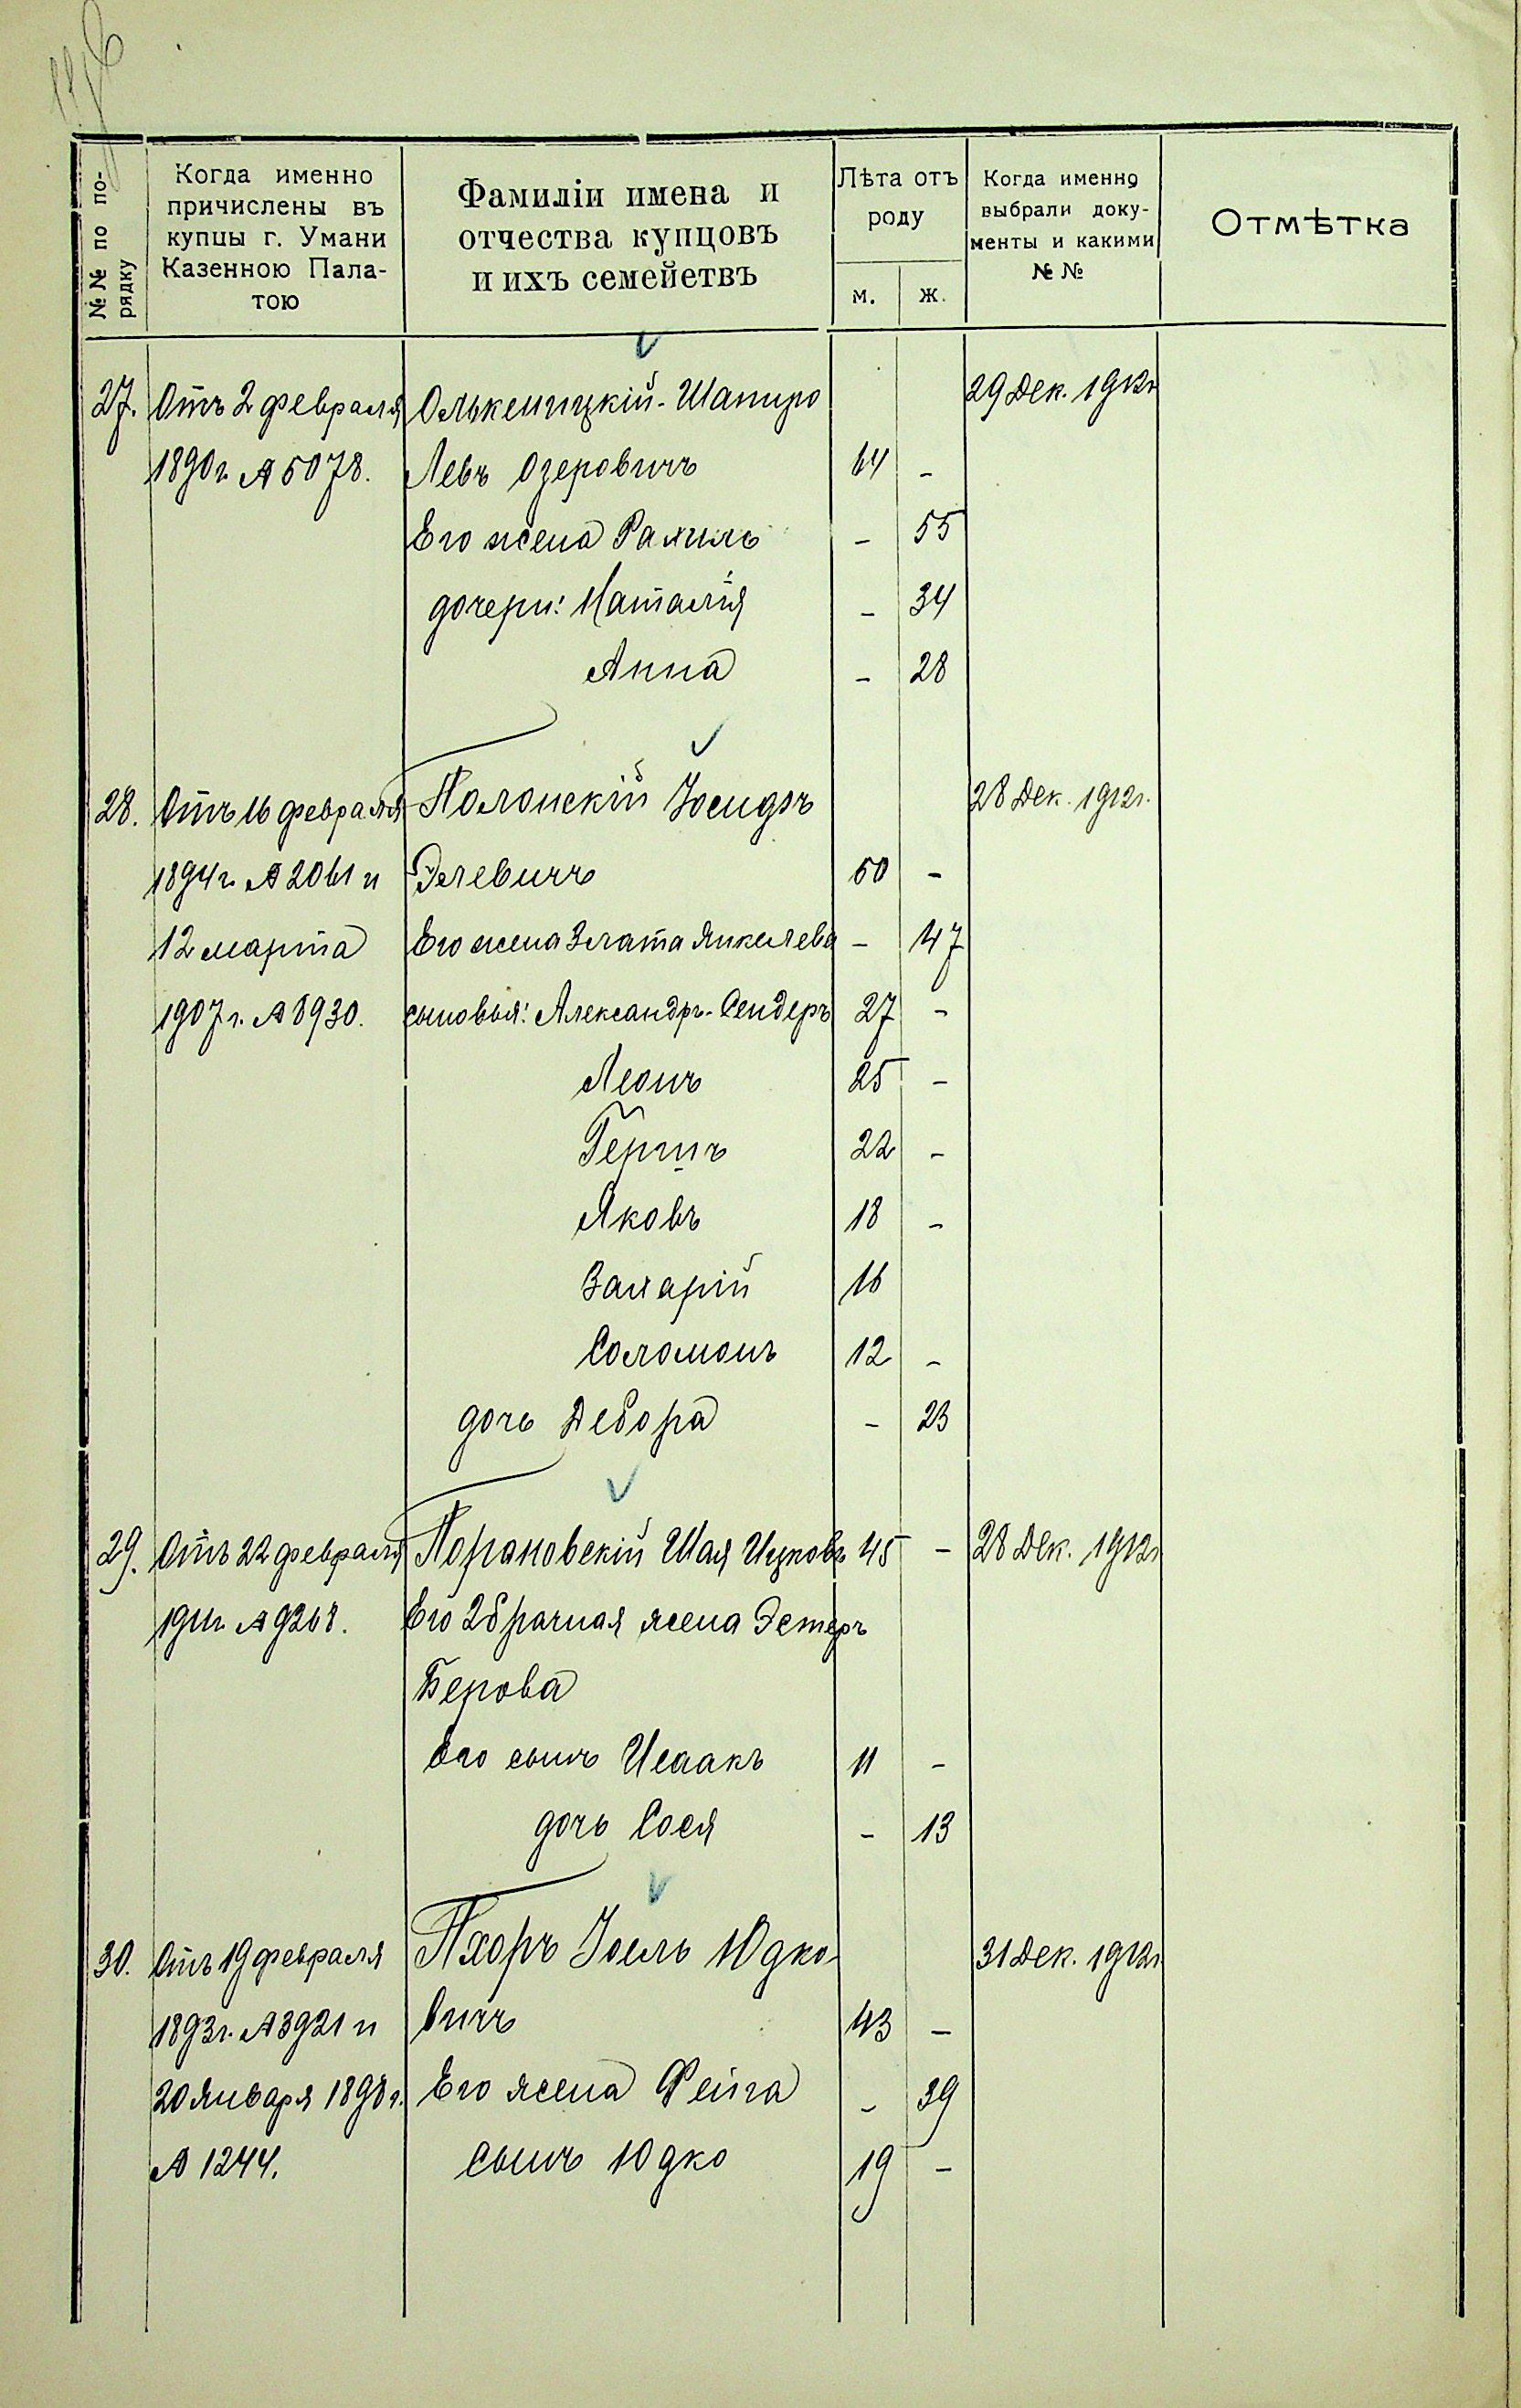 №№ по по-
рядку
Когда именно
причислены въ
купцы г. Умани
Казенною Пала-
тою
Фамиліи имена и
отчества купцовъ
и ихъ семействъ
Лѣта отъ
роду
м.
ж.
Когда именно
выбрали доку-
менты и какими
№ №
Отмѣтка
27. Отъ 2 февраля Олькеницкій-Шапиро 29 Дек. 1912г.
1890г. № 5078. Левъ Озеровичъ 64 -
Его жена Рахиль - 55
дочери: Наталія - 34
Анна - 28
28. Отъ 16 февраля Полонскій Іосифъ 28 Дек. 1912г.
1894г. № 2061 и Элевичъ 50 -
12 марта Его жена Злата Янкелева - 47
1907г. № 8930. сыновья: Александръ-Сендеръ 27 -
Леонъ 25 -
Гершъ 22 -
Яковъ 18 -
Захарій 16
Соломонъ 12 -
дочь Дебора - 23
29. Отъ 22 февраля Порановскій Шая Ицковъ 45 - 28 Дек. 1912г.
1911г. № 9268. Его 2 брачная жена Эстеръ
Берова
Его сынъ Исаакъ 11 -
дочь Сося - 13
30. Отъ 19 февраля Пхоръ Іоель Юдко- 31 Дек. 1912г.
1893г. № 3921 и вичъ 43 -
20 Января 1898г. Его жена Фейга - 39
№ 1244. сынъ Юдко 19 -